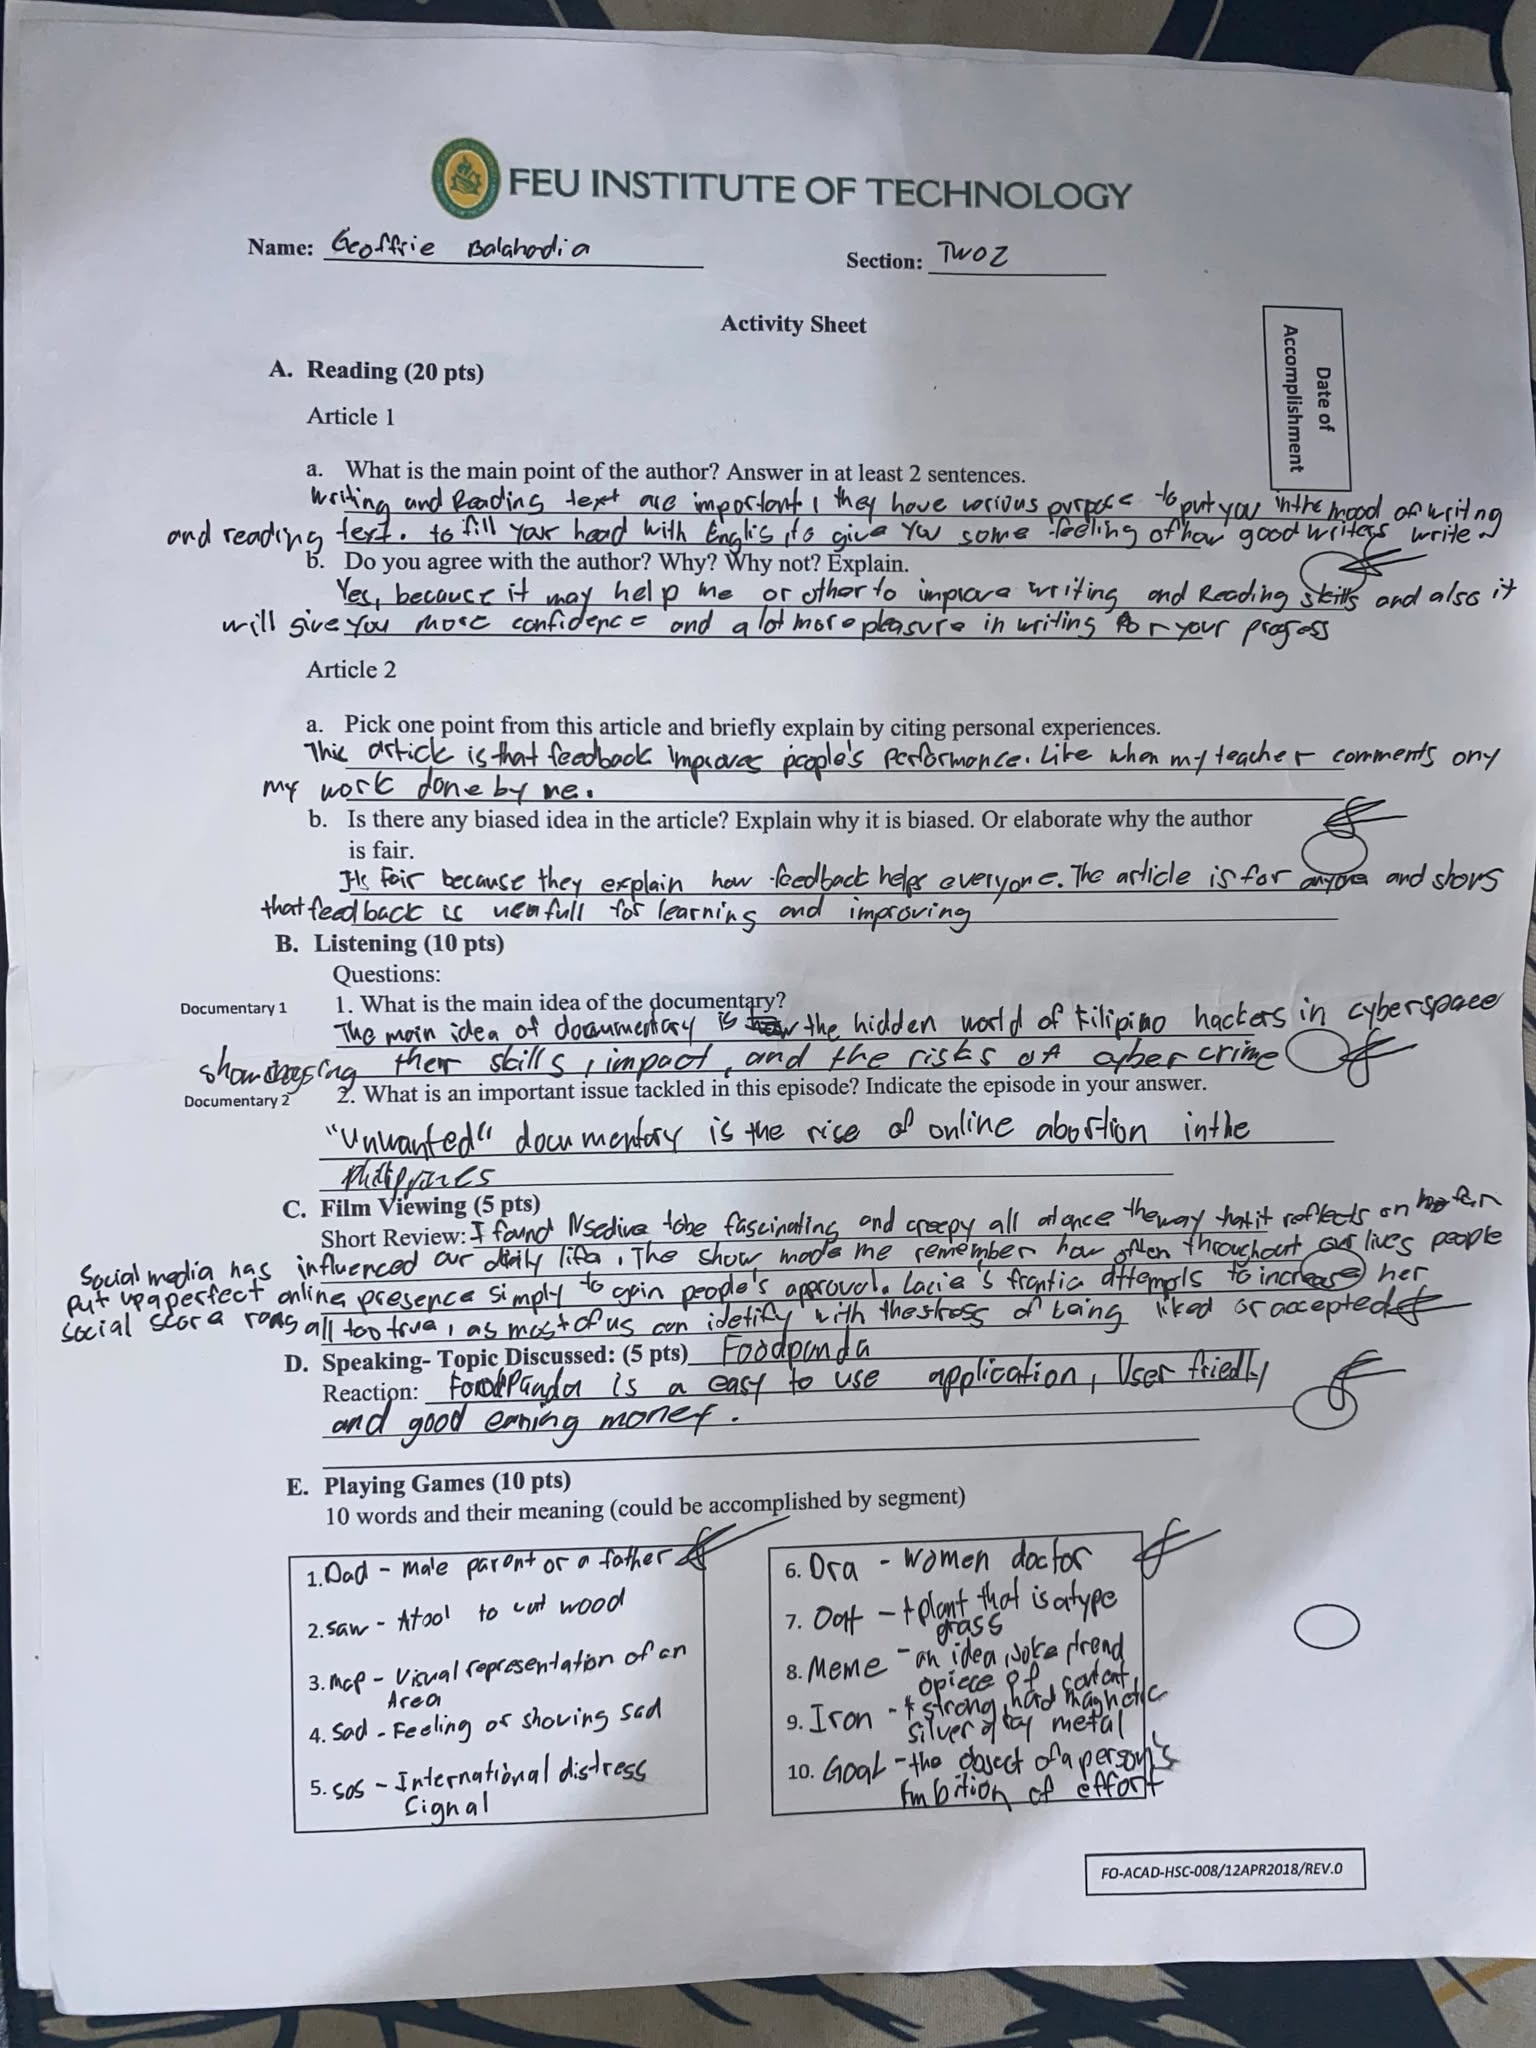 FEU INSTITUTE OF TECHNOLOGY
Name: Geoffrie Balahadia
Section: TWOZ
Activity Sheet
Date of
Accomplishment
A. Reading (20 pts)
Article 1
a. What is the main point of the author? Answer in at least 2 sentences.
Writing and Reading text are important, they have various purpose to put you in the mood of writing
and reading text. to fill your head with Englis, to give you some feeling of how good writers write
b. Do you agree with the author? Why? Why not? Explain.
Yes, because it may help me or other to improve writing and Reading skills and also it
will give you more confidence and a lot more pleasure in writing for your progess
Article 2
a. Pick one point from this article and briefly explain by citing personal experiences.
This artick is that feedback improves people's performance. Like when my teacher comments ony
my work done by me.
b. Is there any biased idea in the article? Explain why it is biased. Or elaborate why the author
is fair.
Its fair because they explain how feedback helps everyone. The article is for and shows
that feedback is for learning and improving
B. Listening (10 pts)
Questions:
Documentary 1
1. What is the main idea of the documentary?
The main idea of documentary is the hidden world of Filipino hackers in cyberspace
their skills, impact, and the risks of cyber crime
Documentary 2
2. What is an important issue tackled in this episode? Indicate the episode in your answer.
"Unwanted" documentary is the rise of online abortion in the
Philippines
C. Film Viewing (5 pts)
Short Review: I found Nsedive to be fascinating and creepy all at once the way that it reflects on
Social media has influenced our daily life. The show made me remember how often throughout our lives people
put up a perfect online presence simply to gain people's approval. Lacie's frantic attempts to increase her
social score all too true, as most of us can idetify with the stress of being liked or accepted
D. Speaking- Topic Discussed: (5 pts) Foodpanda
Reaction: FoodPanda is a easy to use application, User friedly
and good earning money.
E. Playing Games (10 pts)
10 words and their meaning (could be accomplished by segment)
1. Dad - male parent or a father
2. saw - A tool to cut wood
3. map - Visual representation of an
Area
4. Sad - Feeling or showing sad
5. SOS - International distress
Signal
6. Dra - women doctor
7. Oat - plant that is a type
grass
8. Meme - an idea, joke, trend
piece of content
9. Iron - strong, hard magnetic
silver gray metal
10. Goal - the object of a person's
Ambition of effort
FO-ACAD-HSC-008/12APR2018/REV.0